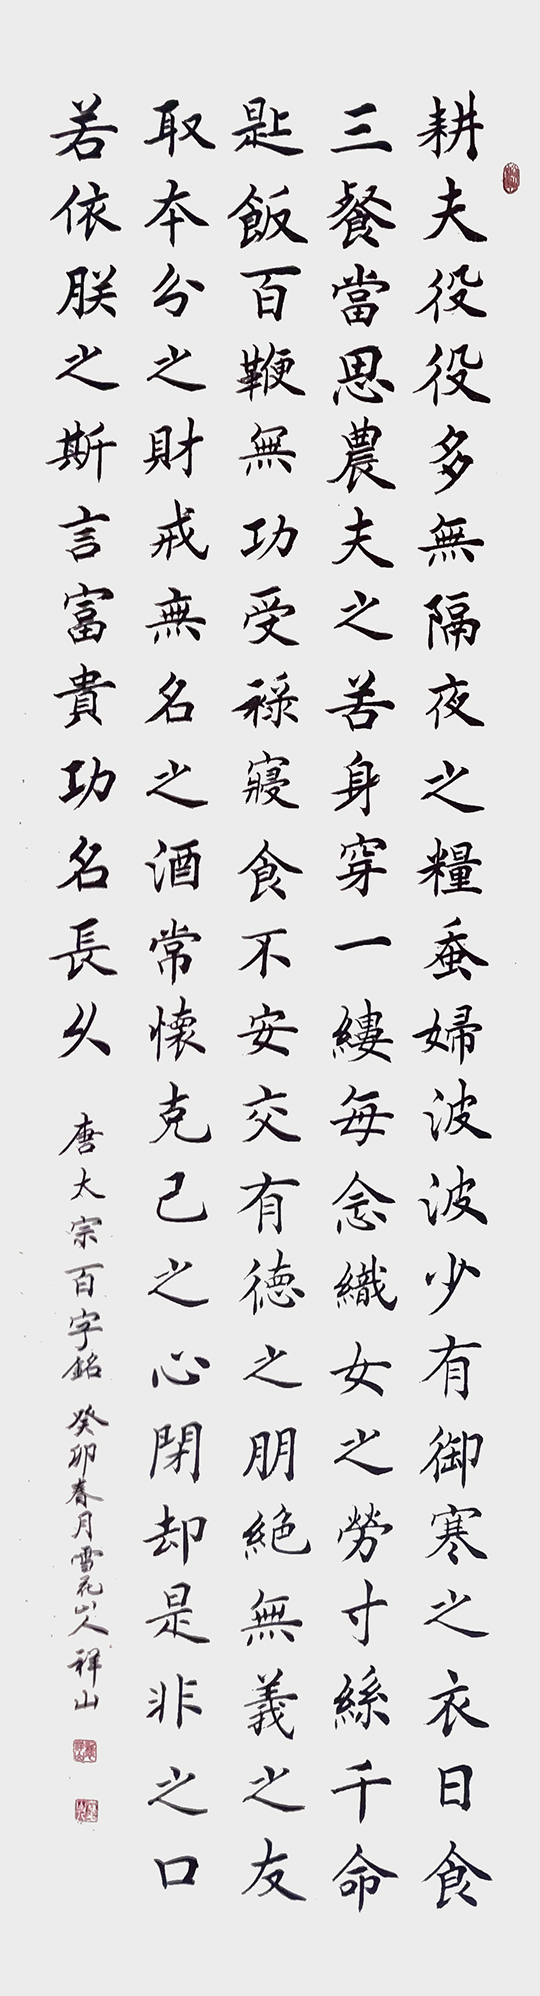 耕夫役役多無隔夜之糧蚕婦波波少有御寒之衣日食
三餐當思農夫之苦身穿一縷每念織女之勞寸絲千命
匙飯百鞭無功受祿寢食不安交有德之朋絕無義之友
取本分之財戒無名之酒常懷克己之心閉却是非之口
若依朕之斯言富貴功名長久
唐太宗百字銘 癸卯春月雪花山人祥山